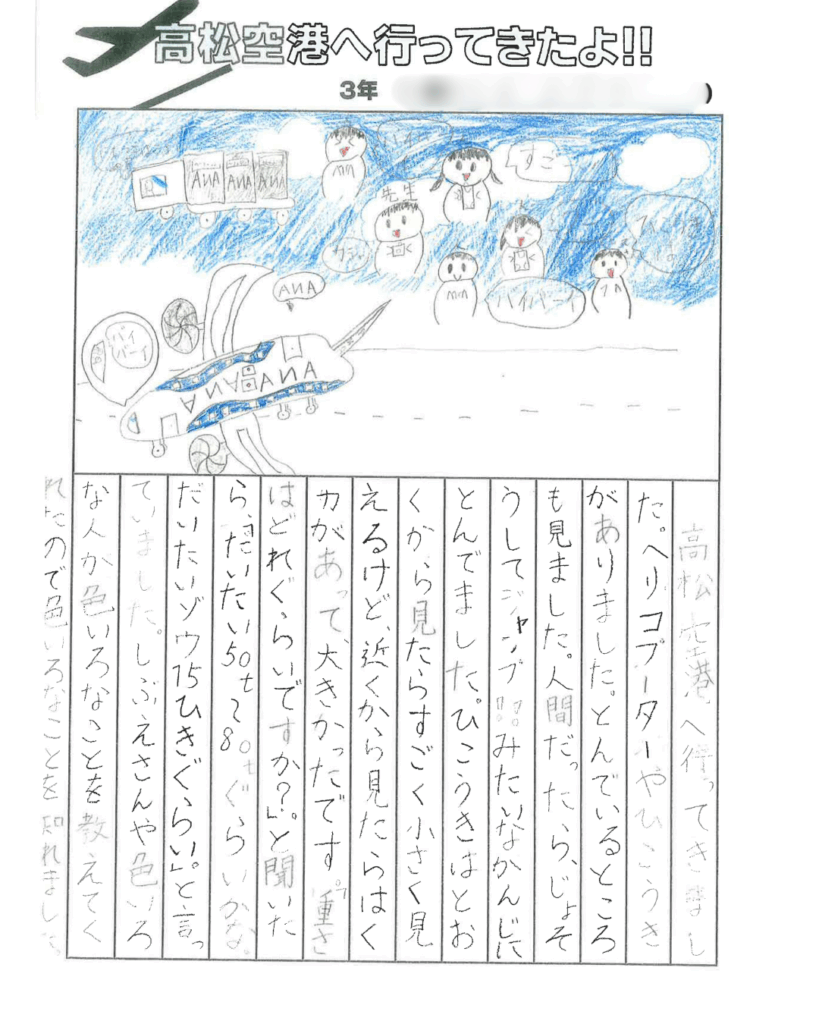 高松空港へ行ってきたよ!!
3年
)
ANA ANA ANA
すご
先生
バイバーイ
ANA
バイ
バーイ
ANA
ANA
高松空港へ行ってきまし
た。ヘリコプーターやひこうき
がありました。とんでいるところ
も見ました。人間だったら、じょそ
うしてジャンプ!!みたいなかんじに
とんでました。ひこうきはとお
くから見たらすごく小さく見
えるけど、近くから見たらはく
力があって、大きかったです。「重さ
はどれぐらいですか?」。と聞いた
ら、「だいたい50t〜80tぐらいかな。
だいたいゾウ15ひきぐらい」。と言っ
ていました。しぶえさんや色いろ
な人が色いろなことを教えてく
れたので色いろなことを知れました。